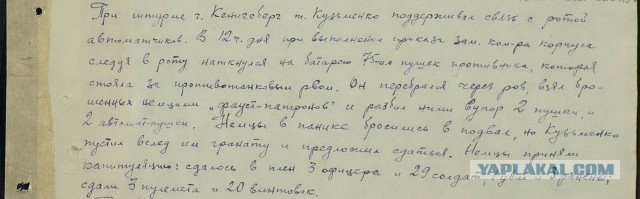 При штурме г. Кенигсберг т. Кузьменко поддерживал связь с ротой
автоматчиков. В 12 ч. дня при выполнении приказа зам. ком-ра корпуса
следуя в роту наткнулся на батарею 75-мм пушек противника, которая
стояла за противотанковым рвом. Он перебрался через ров, взял бро-
шенных немцами "фауст-патронов" и разбил ими в упор 2 пушки, и
2 автомат-пушки. Немцы в панике бросились в подвал, но Кузьменко
пустил вслед им гранату и предложил сдаться. Немцы приняли
капитуляцию: сдалось в плен 3 офицера и 29 солдат,
сдали 3 пулемета и 20 винтовок.
YAPLAKAL.COM